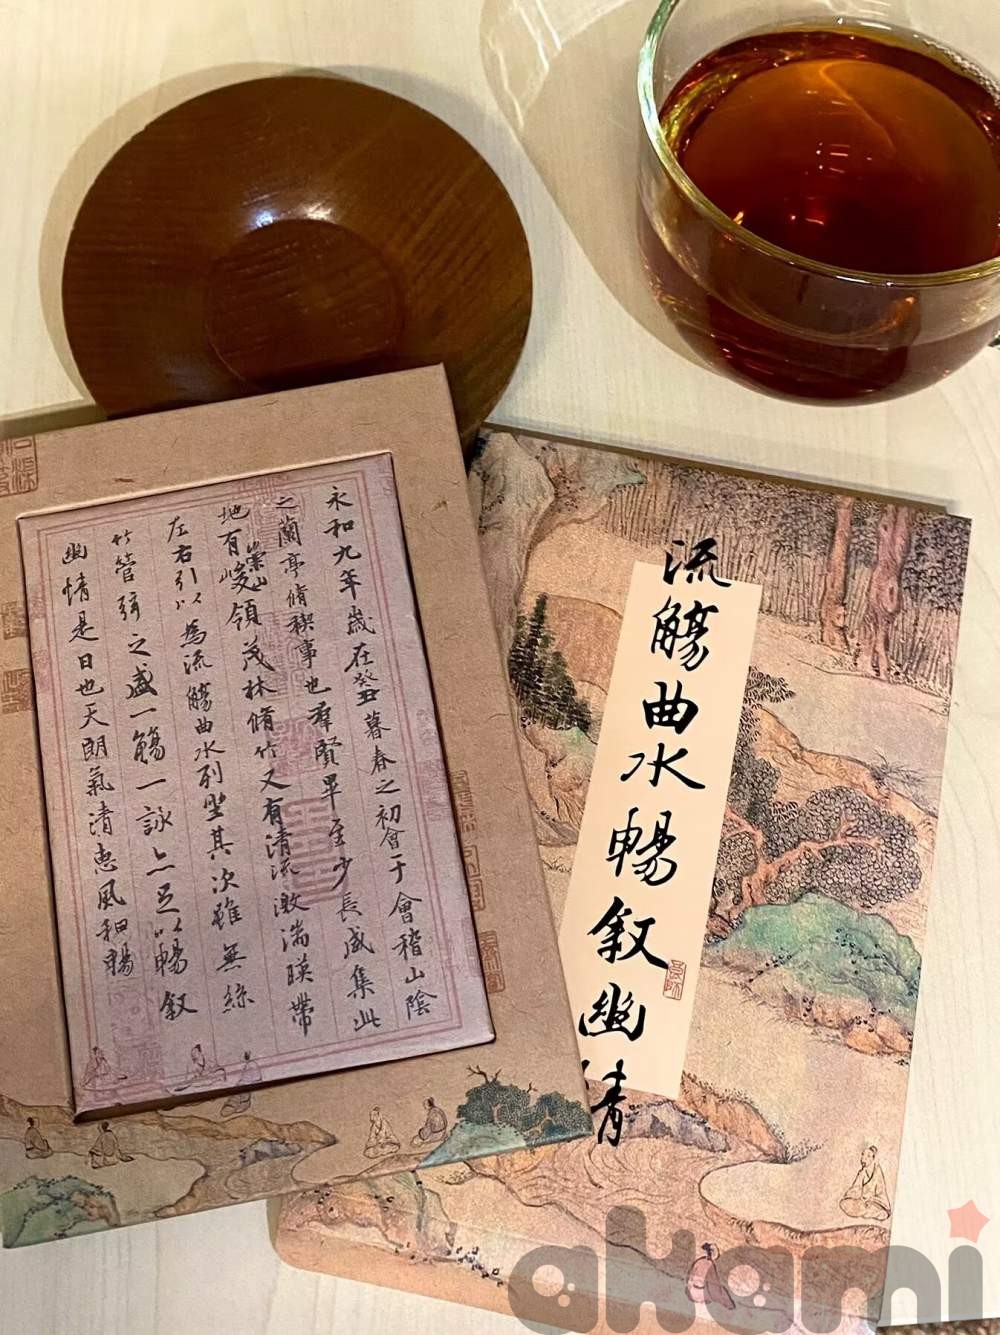 永和九年歲在癸丑暮春之初會于會稽山陰
之蘭亭脩稧事也羣賢畢至少長咸集此
地有崇山峻領茂林脩竹又有清流激湍暎帶
左右引以為流觴曲水列坐其次雖無絲
竹管弦之盛一觴一詠亦足以暢叙
幽情是日也天朗氣清惠風和暢
流觴曲水暢叙幽情
akami